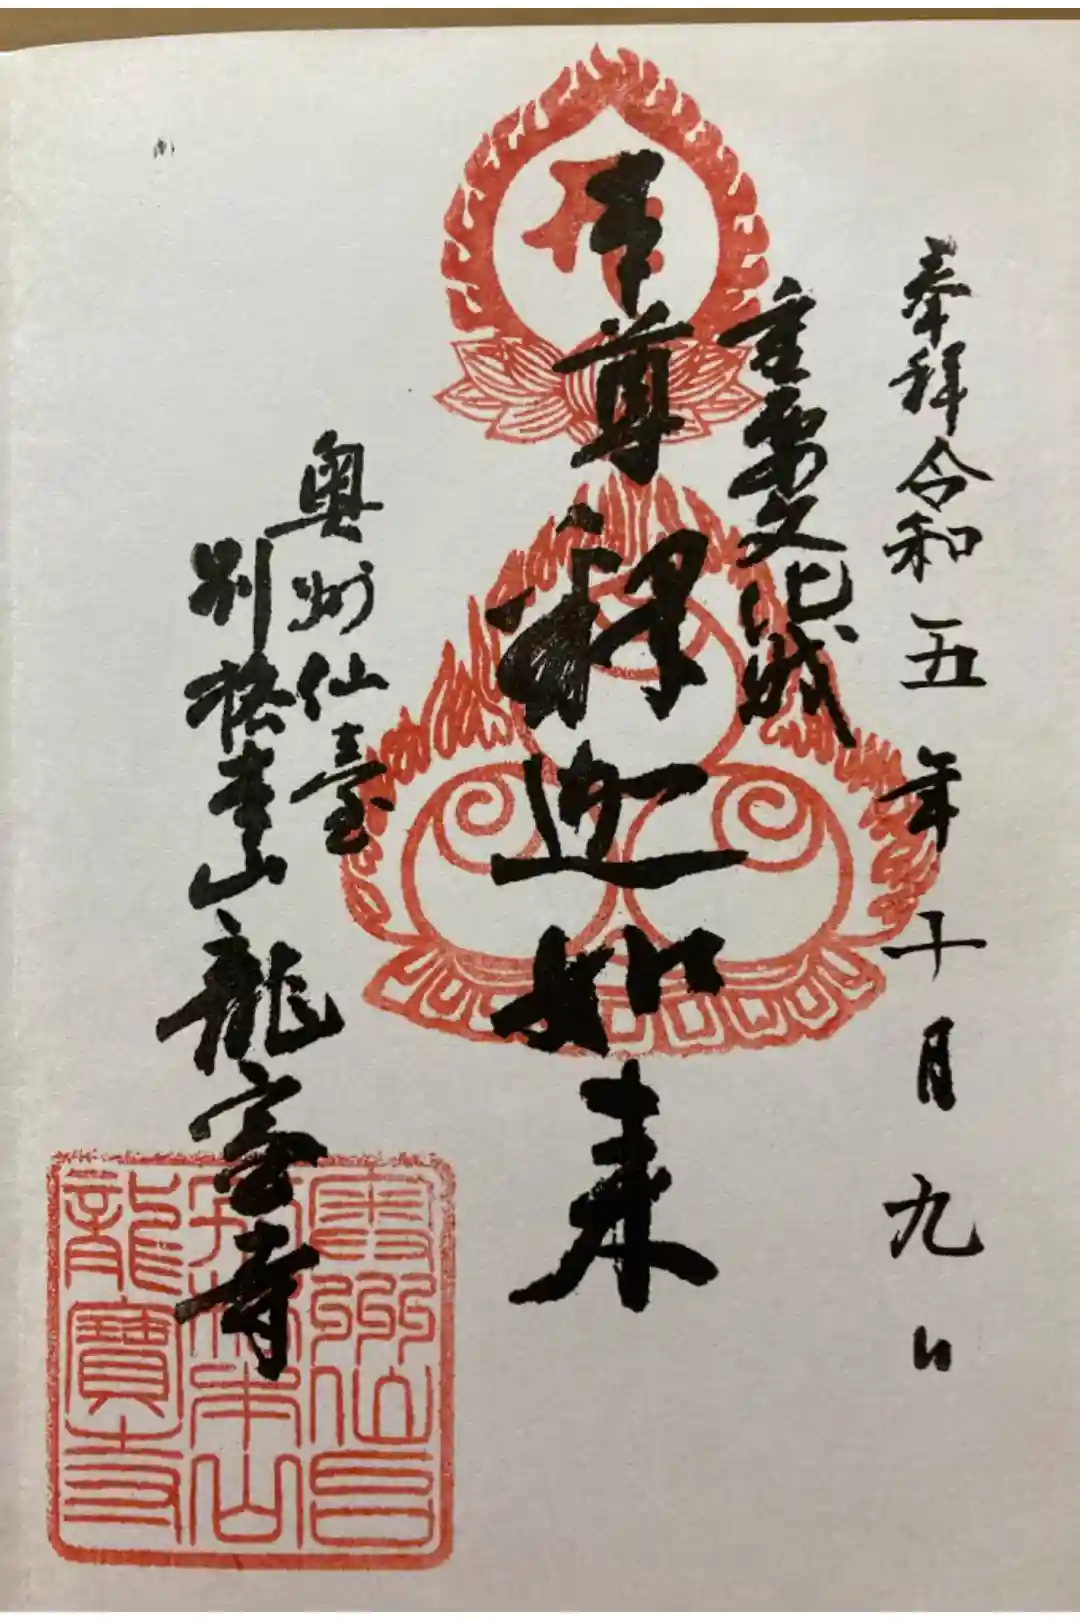 奉拝 令和五年十月九日
重要文化財
本尊 釋迦如来
奥州仙臺
別格本山 龍宝寺
奥州仙台
別格本山
龍寶寺